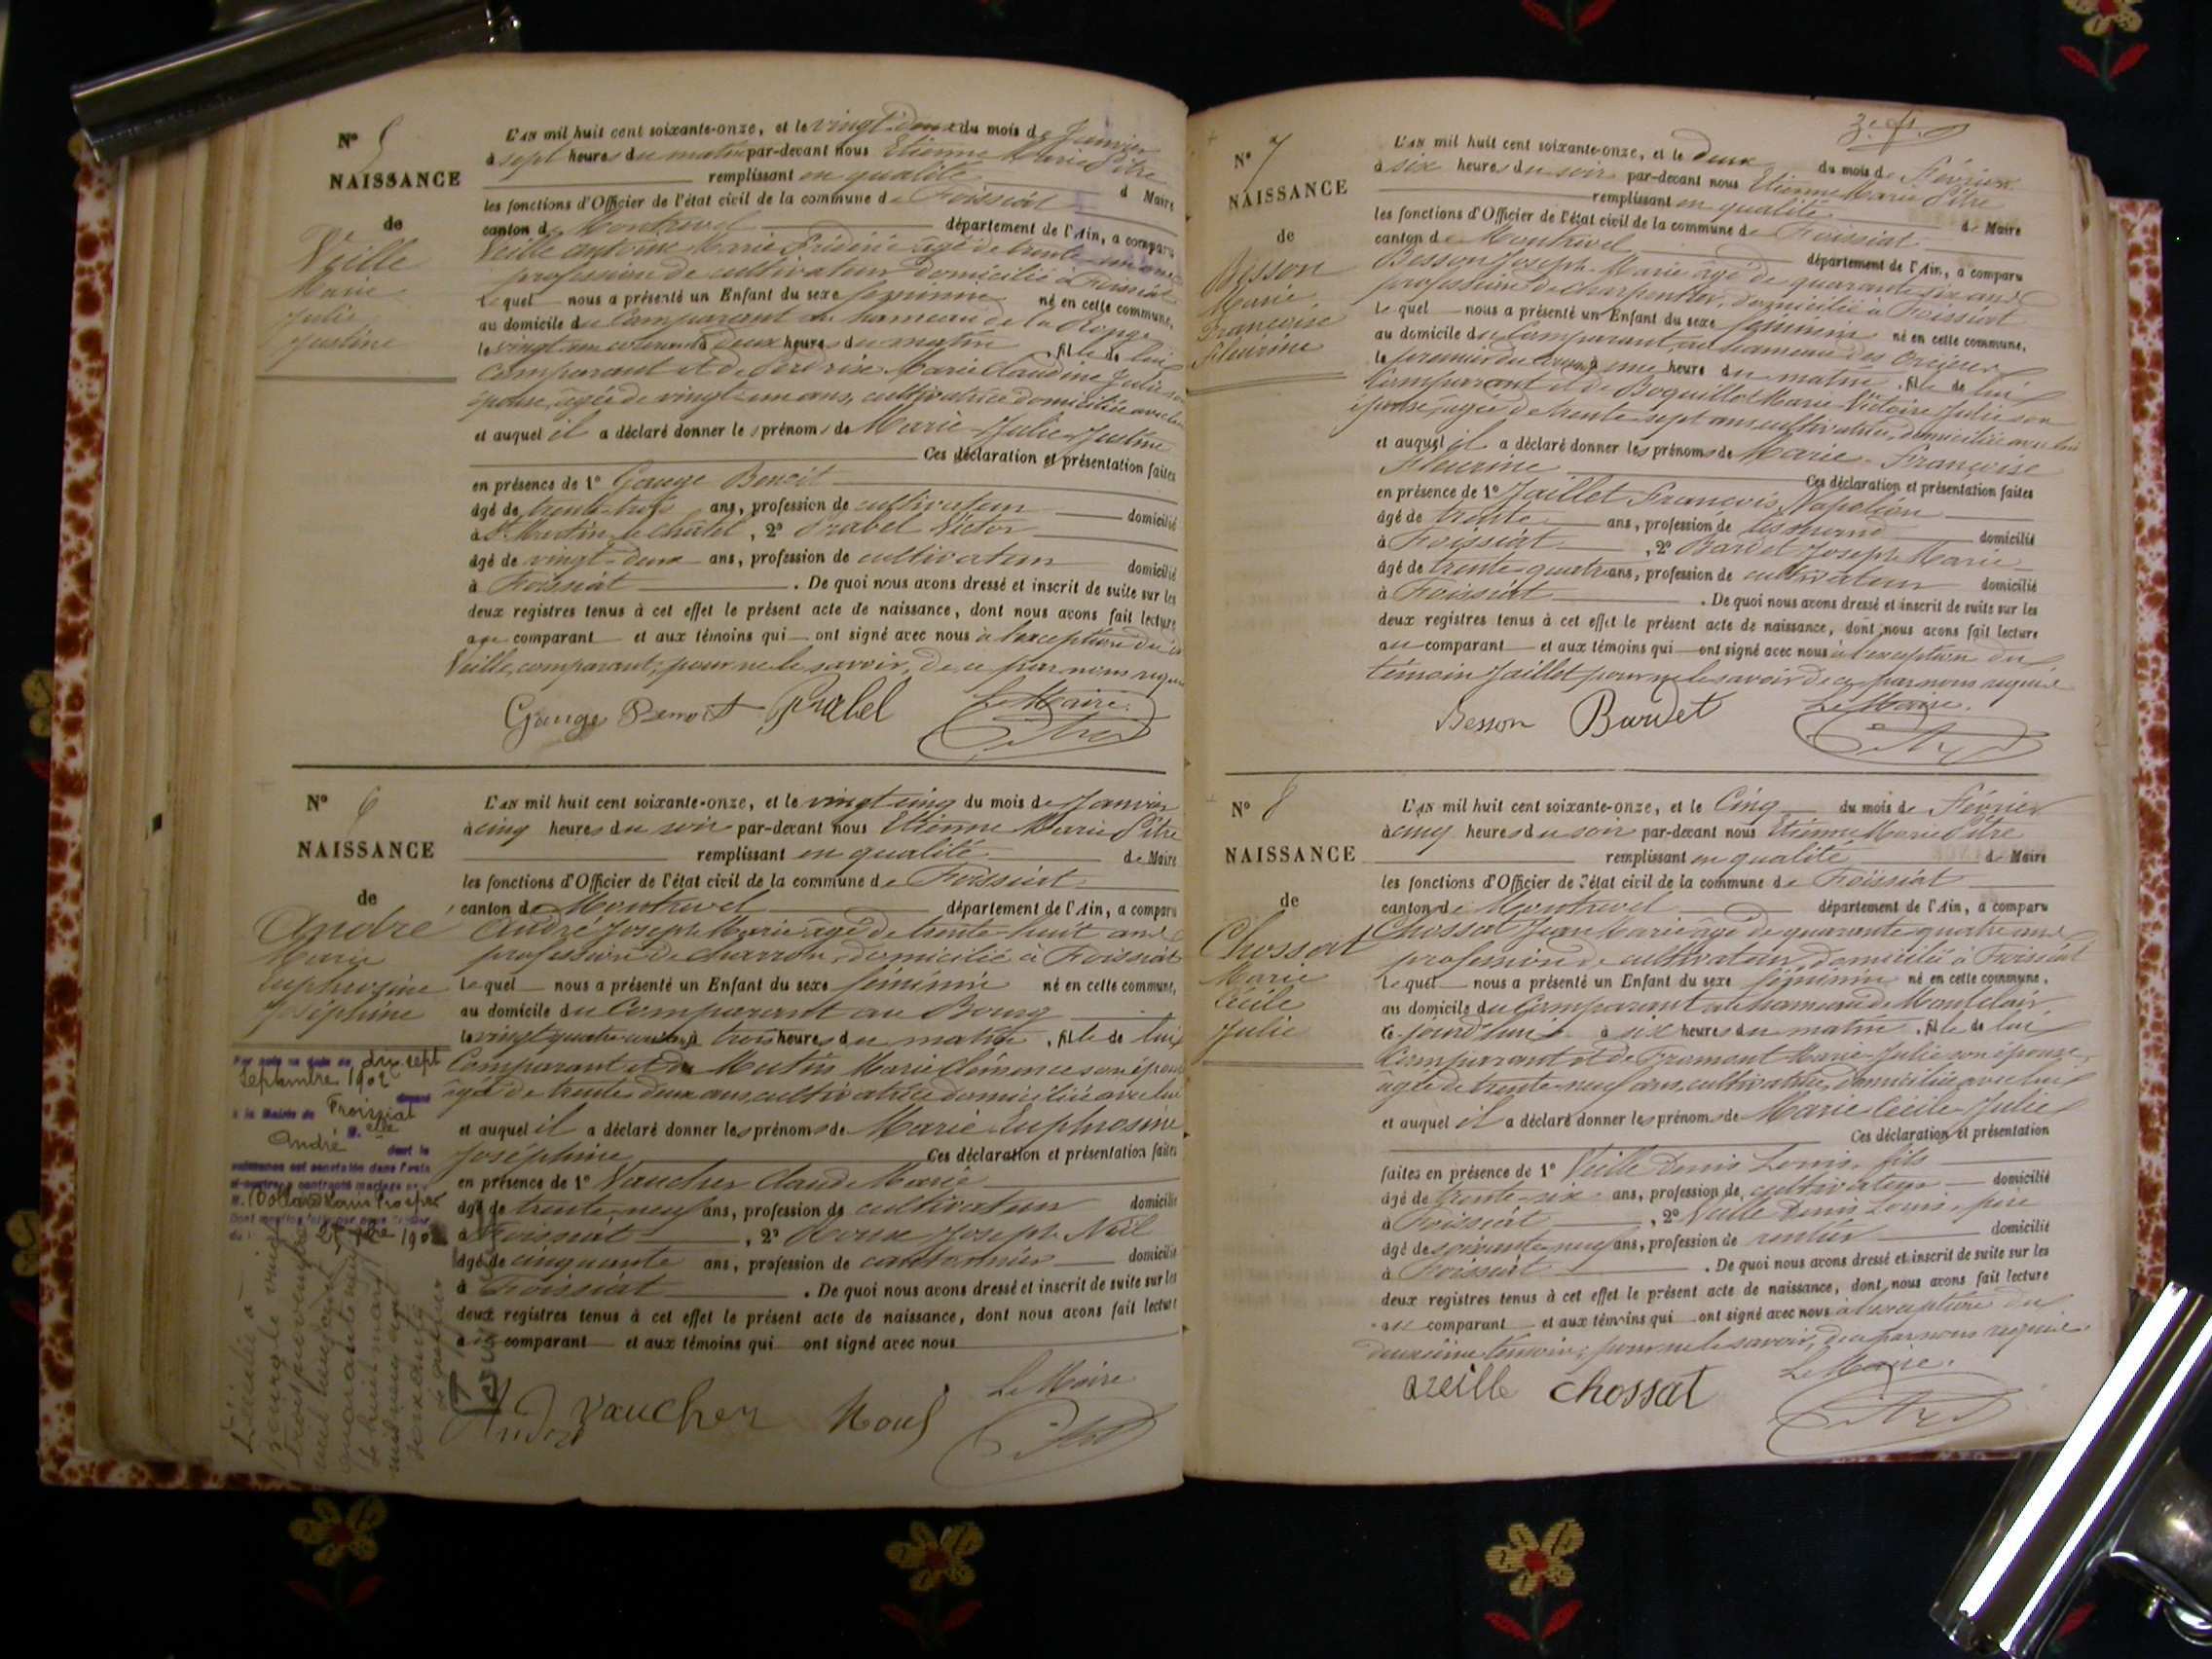 N° 5
NAISSANCE
de
Veille
Marie
Julie
Justine
L'AN mil huit cent soixante-onze, et le vingt-deux du mois de Janvier
à sept heures du matin par-devant nous Etienne Marie Pitre
remplissant en qualité
d Maire
les fonctions d'Officier de l'état civil de la commune de Foissiat
canton de Montrevel département de l'Ain, a comparu
Veille antoine Marie âgé de trente-un ans
profession de cultivateur domicilié à Foissiat
Lequel nous a présenté un Enfant du sexe féminin né en cette commune,
au domicile du Comparant au hameau de la
le vingt un courant à deux heures du matin, fille de lui
Comparant et de Perdrix Marie Claudine Julie son
épouse, âgée de vingt-un ans, cultivatrice domiciliée avec lui
et auquel il a déclaré donner les prénoms de Marie-Julie-Justine
Ces déclaration et présentation faites
en présence de 1° Gauge Benoit
âgé de trente-trois ans, profession de cultivateur domicilié
à St Martin le chatel, 2° Prabel Victor
âgé de vingt-deux ans, profession de cultivateur domicilié
à Foissiat. De quoi nous avons dressé et inscrit de suite sur les
deux registres tenus à cet effet le présent acte de naissance, dont nous avons fait lecture
au comparant et aux témoins qui ont signé avec nous à l'exception du
Veille, comparant, pour ne le savoir, de ce par nous requis
Gauge Benoit Prabel Le Maire.
Pitre
N° 6
NAISSANCE
de
André
Marie
Euphrosine
Joséphine
L'AN mil huit cent soixante-onze, et le vingt cinq du mois de Janvier
à cinq heures du soir par-devant nous Etienne Marie Pitre
remplissant en qualité de Maire
les fonctions d'Officier de l'état civil de la commune de Foissiat
canton de Montrevel département de l'Ain, a comparu
André Joseph Marie âgé de trente-huit ans
profession de charron, domicilié à Foissiat
Lequel nous a présenté un Enfant du sexe féminin né en cette commune,
au domicile du Comparant au Bourg
le vingt quatre courant à trois heures du matin, fille de lui
Comparant et de Mutin Marie Clémence son épouse
âgée de trente deux ans, cultivatrice domiciliée avec lui
et auquel il a déclaré donner les prénoms de Marie-Euphrosine
Joséphine Ces déclaration et présentation faites
en présence de 1° Vaucher Claude Marie
âgé de trente-neuf ans, profession de cultivateur domicilié
à Foissiat, 2° Joseph Noël
âgé de cinquante ans, profession de cantonnier domicilié
à Foissiat. De quoi nous avons dressé et inscrit de suite sur les
deux registres tenus à cet effet le présent acte de naissance, dont nous avons fait lecture
comparant et aux témoins qui ont signé avec nous
Le Maire
André vaucher
Pitre
Par acte en date du dix-sept
Septembre 1902
à la Mairie de Froissiat
elle
André dont la
naissance est constatée dans l'acte
Louis Prosper
Décédée à
N° 7
NAISSANCE
de
Besson
Marie
Françoise
Fleurine
L'AN mil huit cent soixante-onze, et le deux du mois de Février
à six heures du soir par-devant nous Etienne Marie Pitre
remplissant en qualité de Maire
les fonctions d'Officier de l'état civil de la commune de Foissiat
canton de Montrevel département de l'Ain, a comparu
Besson Joseph-Marie âgé de quarante-six ans
profession de charpentier, domicilié à Foissiat
Lequel nous a présenté un Enfant du sexe féminin né en cette commune,
au domicile du Comparant, au hameau des
le premier du courant à une heure du matin, fille de lui
Comparant et de Boquillot Marie Victoire Julie son
épouse, âgée de trente-sept ans cultivatrice, domiciliée avec lui
et auquel il a déclaré donner les prénoms de Marie-Françoise
Fleurine Ces déclaration et présentation faites
en présence de 1° Jaillet François Napoléon
âgé de trente ans, profession de domicilié
à Foissiat, 2° Bardet Joseph Marie
âgé de trente-quatre ans, profession de cultivateur domicilié
à Foissiat. De quoi nous avons dressé et inscrit de suite sur les
deux registres tenus à cet effet le présent acte de naissance, dont nous avons fait lecture
au comparant et aux témoins qui ont signé avec nous à l'exception du
témoin Jaillet pour ne le savoir de ce par nous requis
Besson Bardet Le Maire.
Pitre
N° 8
NAISSANCE
de
Chossat
Marie
Cécile
Julie
L'AN mil huit cent soixante-onze, et le Cinq du mois de Février
à cinq heures du soir par-devant nous Etienne Marie Pitre
remplissant en qualité de Maire
les fonctions d'Officier de l'état civil de la commune de Foissiat
canton de Montrevel département de l'Ain, a comparu
Chossat Jean Marie âgé de quarante quatre ans
profession de cultivateur, domicilié à Foissiat
Lequel nous a présenté un Enfant du sexe féminin né en cette commune,
au domicile du Comparant au hameau de Montclair
ce jourd'hui à six heures du matin, fille de lui
Comparant et de Fromont Marie-Julie son épouse,
âgée de trente-neuf ans, cultivatrice, domiciliée avec lui
et auquel il a déclaré donner les prénoms de Marie-Cécile-Julie
Ces déclaration et présentation
faites en présence de 1° Veille Denis Louis, fils
âgé de trente-six ans, profession de cultivateur domicilié
à Foissiat, 2° Veille Denis Louis, père
âgé de soixante-neuf ans, profession de rentier domicilié
à Foissiat. De quoi nous avons dressé et inscrit de suite sur les
deux registres tenus à cet effet le présent acte de naissance, dont nous avons fait lecture
au comparant et aux témoins qui ont signé avec nous à l'exception du
deuxième témoin, pour ne le savoir, de ce par nous requis
veille chossat Le Maire.
Pitre